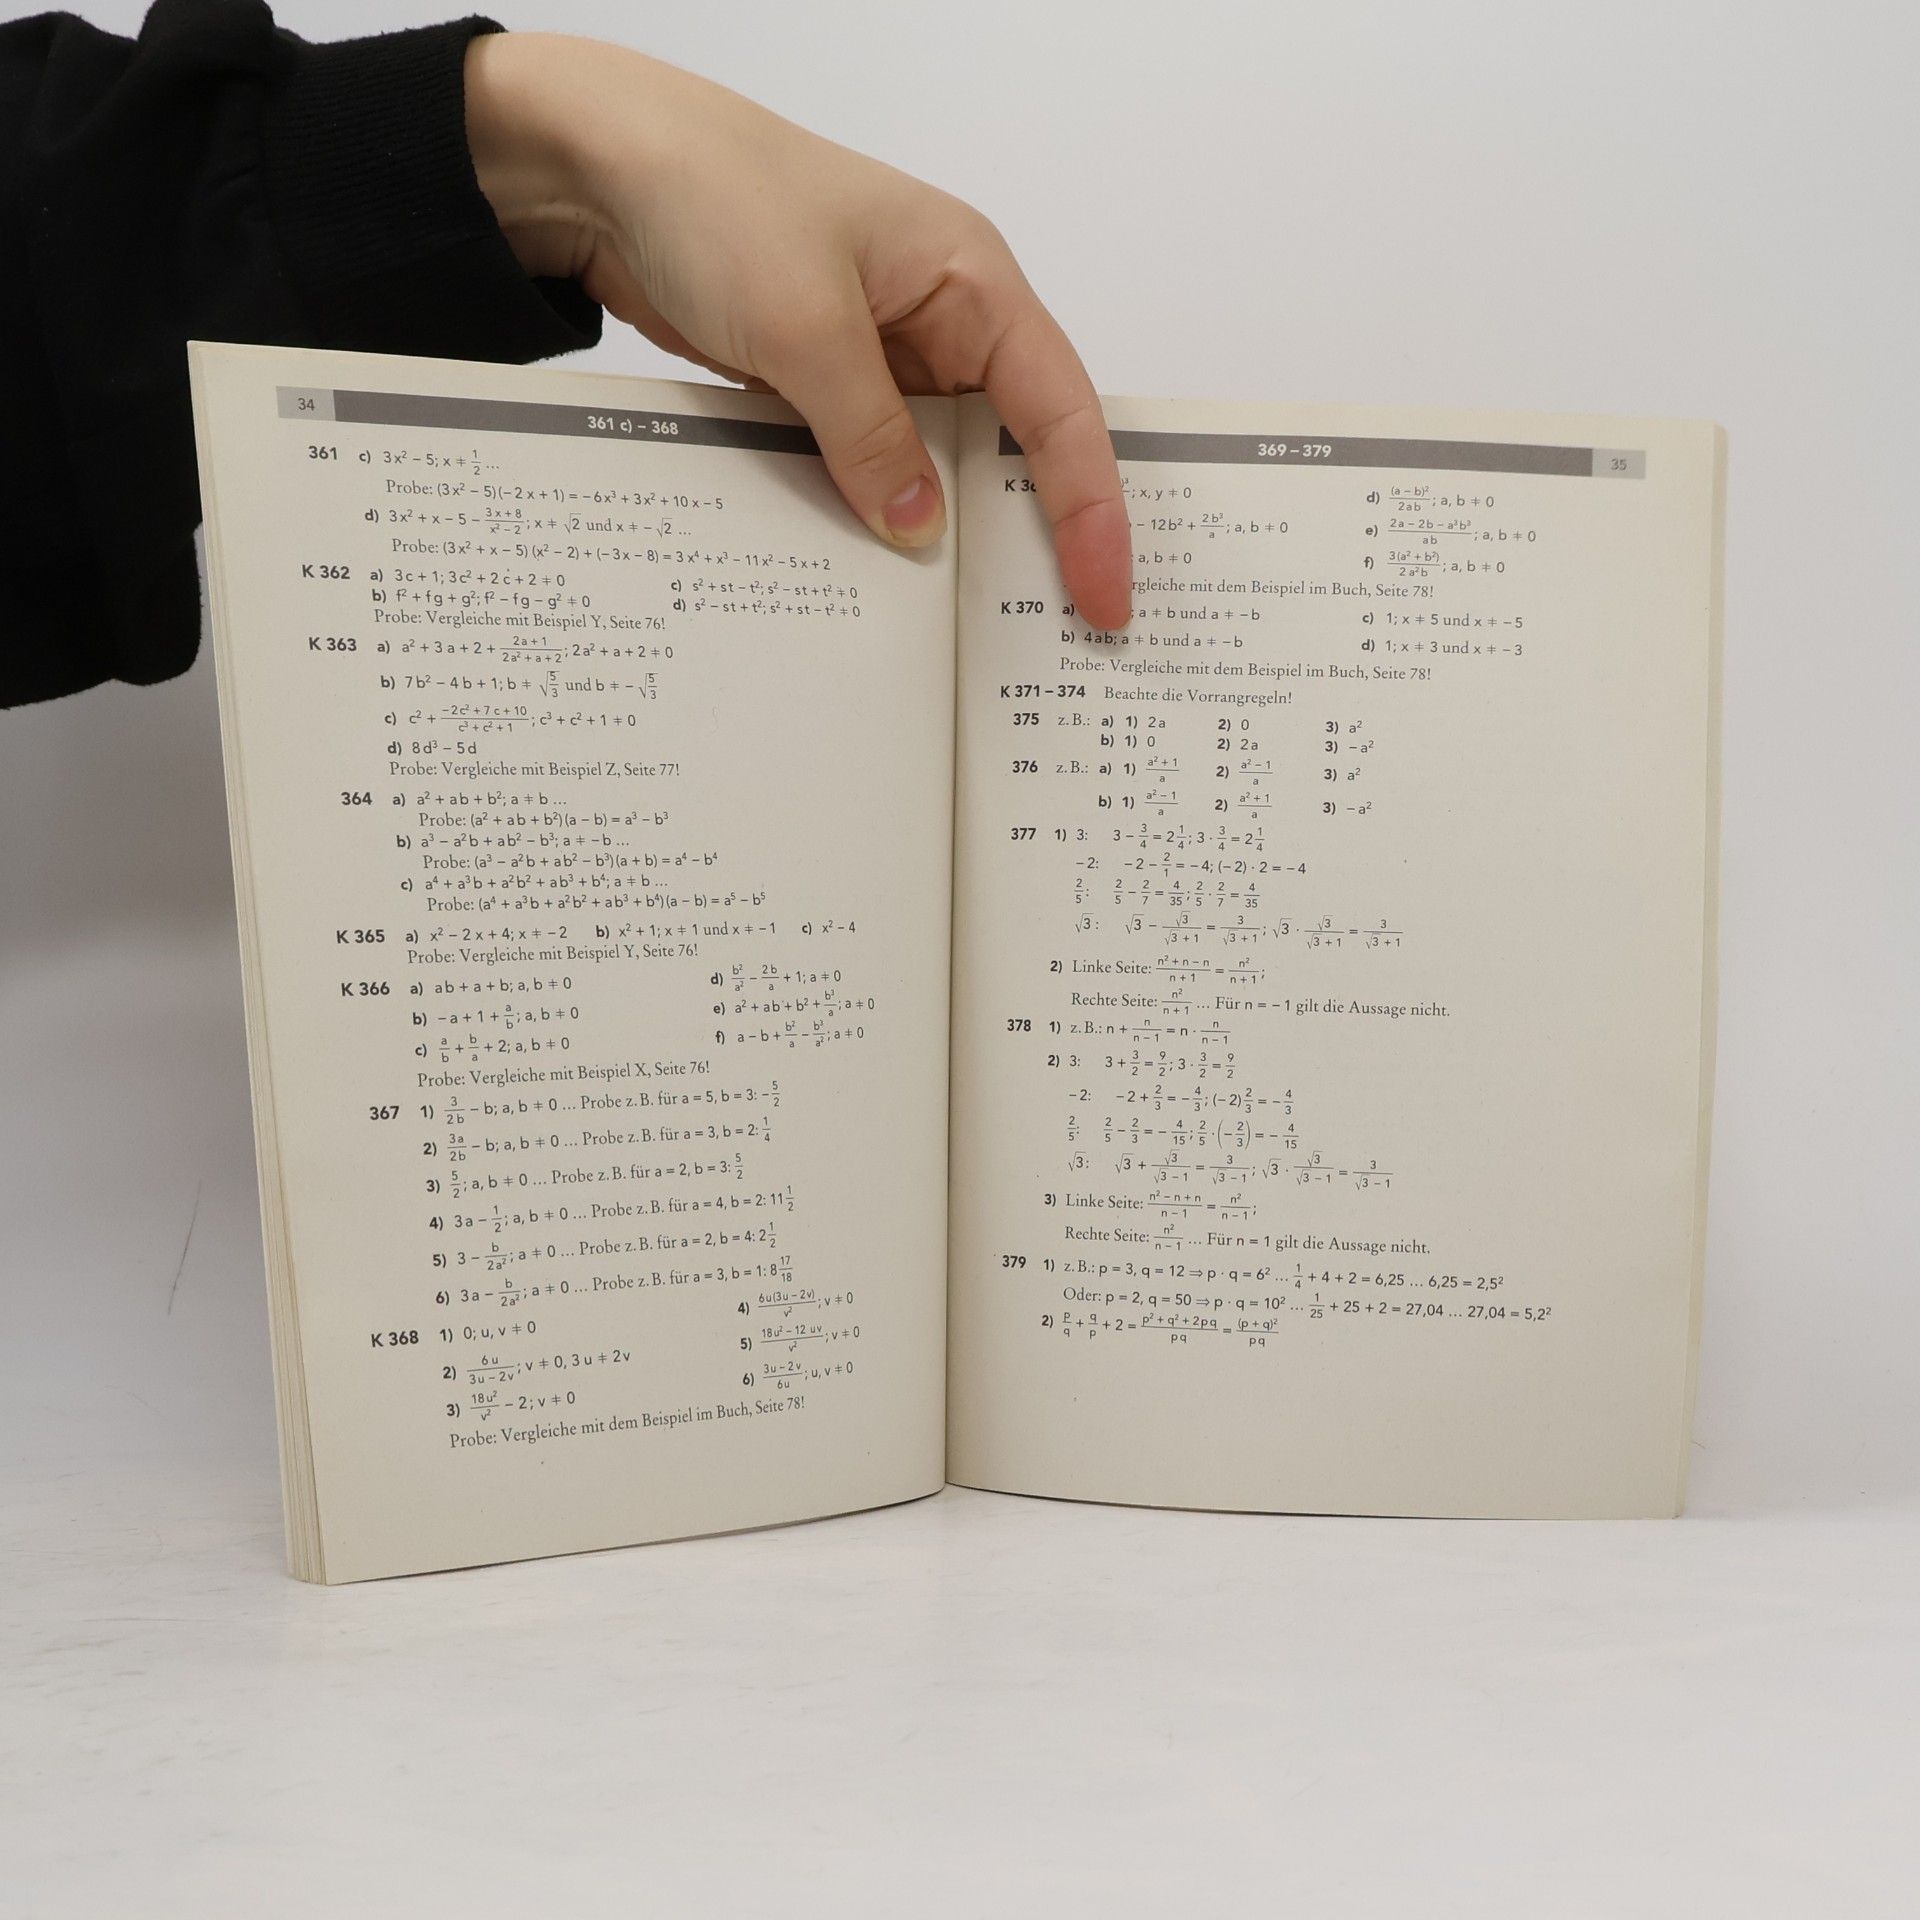 34
361 c) – 368
361 c) 3x² – 5; x ≠ 1/2 ...
Probe: (3x² – 5)(–2x + 1) = –6x³ + 3x² + 10x – 5
d) 3x² + x – 5 – (3x + 8)/(x² – 2); x ≠ √2 und x ≠ –√2 ...
Probe: (3x² + x – 5)(x² – 2) + (–3x – 8) = 3x⁴ + x³ – 11x² – 5x + 2
K 362 a) 3c + 1; 3c² + 2c + 2 ≠ 0 c) s² + st – t²; s² – st + t² ≠ 0
b) f² + fg + g²; f² – fg – g² ≠ 0 d) s² – st + t²; s² + st – t² ≠ 0
Probe: Vergleiche mit Beispiel Y, Seite 76!
K 363 a) a² + 3a + 2 + (2a + 1)/(2a² + a + 2); 2a² + a + 2 ≠ 0
b) 7b² – 4b + 1; b ≠ √(5/3) und b ≠ –√(5/3)
c) c² + (–2c² + 7c + 10)/(c³ + c² + 1); c³ + c² + 1 ≠ 0
d) 8d³ – 5d
Probe: Vergleiche mit Beispiel Z, Seite 77!
364 a) a² + ab + b²; a ≠ b ...
Probe: (a² + ab + b²)(a – b) = a³ – b³
b) a³ – a²b + ab² – b³; a ≠ –b ...
Probe: (a³ – a²b + ab² – b³)(a + b) = a⁴ – b⁴
c) a⁴ + a³b + a²b² + ab³ + b⁴; a ≠ b ...
Probe: (a⁴ + a³b + a²b² + ab³ + b⁴)(a – b) = a⁵ – b⁵
K 365 a) x² – 2x + 4; x ≠ –2 b) x² + 1; x ≠ 1 und x ≠ –1 c) x² – 4
Probe: Vergleiche mit Beispiel Y, Seite 76!
K 366 a) ab + a + b; a, b ≠ 0 d) b²/a² – 2b/a + 1; a ≠ 0
b) –a + 1 + a/b; a, b ≠ 0 e) a² + ab + b² + b³/a; a ≠ 0
c) a/b + b/a + 2; a, b ≠ 0 f) a – b + b²/a – b³/a²; a ≠ 0
Probe: Vergleiche mit Beispiel X, Seite 76!
367 1) 3/2b – b; a, b ≠ 0 ... Probe z. B. für a = 5, b = 3: –5/2
2) 3a/2b – b; a, b ≠ 0 ... Probe z. B. für a = 3, b = 2: 1/4
3) 5/2; a, b ≠ 0 ... Probe z. B. für a = 2, b = 3: 5/2
4) 3a – 1/2; a, b ≠ 0 ... Probe z. B. für a = 4, b = 2: 11 1/2
5) 3 – b/2a²; a ≠ 0 ... Probe z. B. für a = 2, b = 4: 2 1/2
6) 3a – b/2a²; a ≠ 0 ... Probe z. B. für a = 3, b = 1: 8 17/18
K 368 1) 0; u, v ≠ 0 4) 6u(3u – 2v)/v²; v ≠ 0
2) 6u/(3u – 2v); v ≠ 0, 3u ≠ 2v 5) (18u² – 12uv)/v²; v ≠ 0
3) 18u²/v² – 2; v ≠ 0 6) (3u – 2v)/6u; u, v ≠ 0
Probe: Vergleiche mit dem Beispiel im Buch, Seite 78!
369 – 379
35
K ; x, y ≠ 0 d) (a – b)²/2ab; a, b ≠ 0
– 12b² + 2b³/a; a, b ≠ 0 e) (2a – 2b – a³b³)/ab; a, b ≠ 0
a, b ≠ 0 f) 3(a² + b²)/2a²b; a, b ≠ 0
mit dem Beispiel im Buch, Seite 78!
K 370 a) ; a ≠ b und a ≠ –b c) 1; x ≠ 5 und x ≠ –5
b) 4ab; a ≠ b und a ≠ –b d) 1; x ≠ 3 und x ≠ –3
Probe: Vergleiche mit dem Beispiel im Buch, Seite 78!
K 371 – 374 Beachte die Vorrangregeln!
375 z. B.: a) 1) 2a 2) 0 3) a²
b) 1) 0 2) 2a 3) –a²
376 z. B.: a) 1) (a² + 1)/a 2) (a² – 1)/a 3) a²
b) 1) (a² – 1)/a 2) (a² + 1)/a 3) –a²
377 1) 3: 3 – 3/4 = 2 1/4; 3 · 3/4 = 2 1/4
–2: –2 – 2/1 = –4; (–2) · 2 = –4
2/5: 2/5 – 2/7 = 4/35; 2/5 · 2/7 = 4/35
√3: √3 – √3/(√3 + 1) = 3/(√3 + 1); √3 · √3/(√3 + 1) = 3/(√3 + 1)
2) Linke Seite: (n² + n – n)/(n + 1) = n²/(n + 1);
Rechte Seite: n²/(n + 1) ... Für n = –1 gilt die Aussage nicht.
378 1) z. B.: n + n/(n – 1) = n · n/(n – 1)
2) 3: 3 + 3/2 = 9/2; 3 · 3/2 = 9/2
–2: –2 + 2/3 = –4/3; (–2) 2/3 = –4/3
2/5: 2/5 – 2/3 = –4/15; 2/5 · (–2/3) = –4/15
√3: √3 + √3/(√3 – 1) = 3/(√3 – 1); √3 · √3/(√3 – 1) = 3/(√3 – 1)
3) Linke Seite: (n² – n + n)/(n – 1) = n²/(n – 1);
Rechte Seite: n²/(n – 1) ... Für n = 1 gilt die Aussage nicht.
379 1) z. B.: p = 3, q = 12 ⇒ p · q = 6² ... 1/4 + 4 + 2 = 6,25 ... 6,25 = 2,5²
Oder: p = 2, q = 50 ⇒ p · q = 10² ... 1/25 + 25 + 2 = 27,04 ... 27,04 = 5,2²
2) p/q + q/p + 2 = (p² + q² + 2pq)/pq = (p + q)²/pq